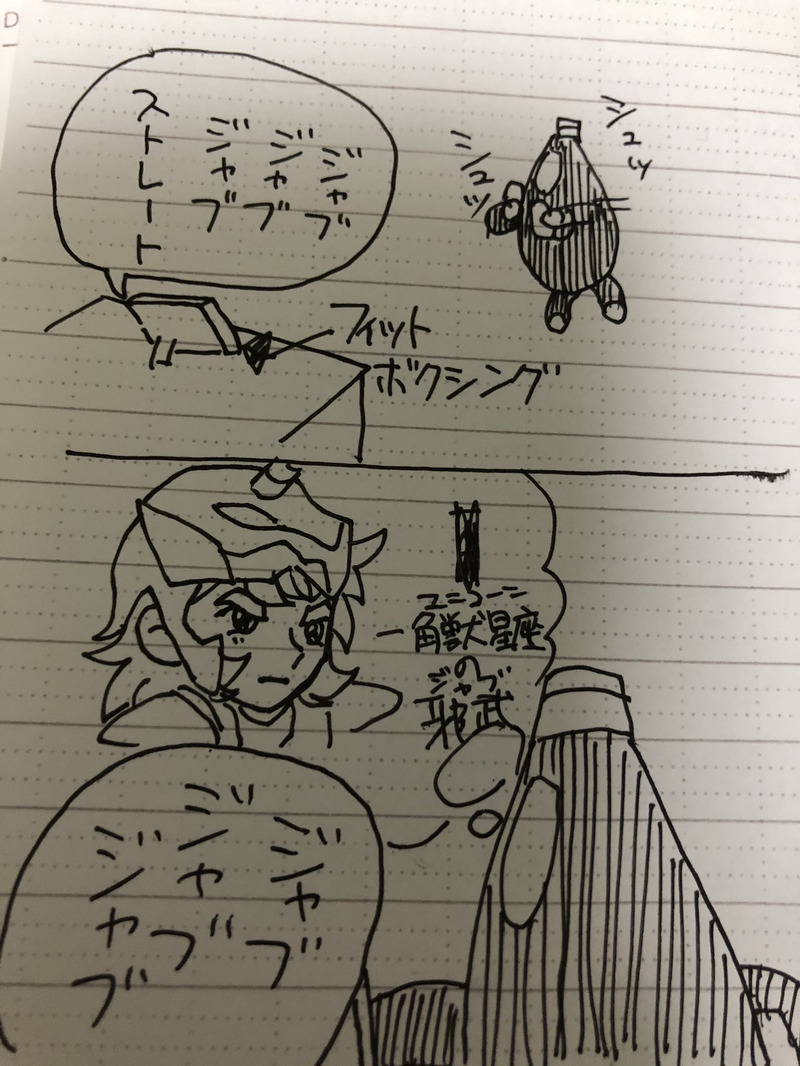 D
シュッ
シュッ
ジャブ
ジャブ
ジャブ
ストレート
フィット
ボクシング
ユニコーン
一角獣星座
の
ジャブ
邪武
ジャブ
ジャブ
ジャブ